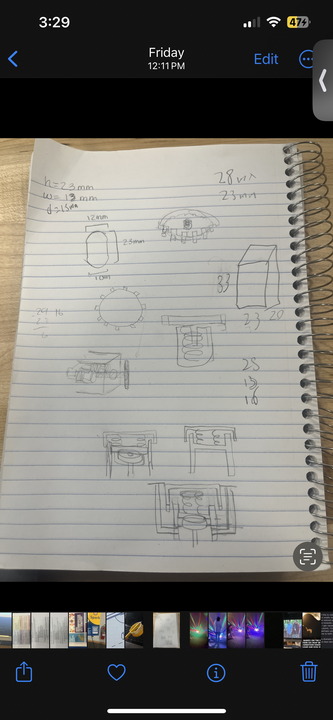 3:29
47
Friday
12:11 PM
Edit
h=23mm
w=13mm
d=15mm
28
23 mm
12mm
23mm
33
23 20
25
13
16